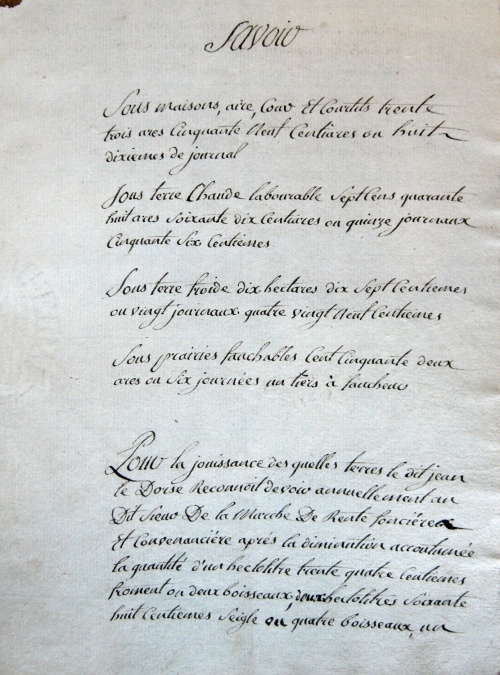 Savoir
Sous maisons, aire, Cour Et Courtils trente
trois ares Cinquante Neuf Centiares ou huit
dixiemes de journal
Sous terre Chaude labourable Sept Cens quarante
huit ares Soixante dix Centiares ou quinze journaux
Cinquante Six Centiemes
Sous terre froide dix hectares dix Sept Centiemes
ou vingt journaux quatre vingt Neuf Centiemes
Sous prairies fauchables Cent Cinquante deux
ares ou Six journées un tiers à faucheur
Pour la jouissance des quelles terres le dit jean
le Dorse Reconnoit devoir annuellement au
Dit Sieur De la Marche De Rente foncière
Et Convenancière après la diminution accoutumée
la quantité d'un hectolitre trente quatre Centiemes
froment ou deux boisseaux, deux hectolitres Soixante
huit Centiemes Seigle ou quatre boisseaux, un